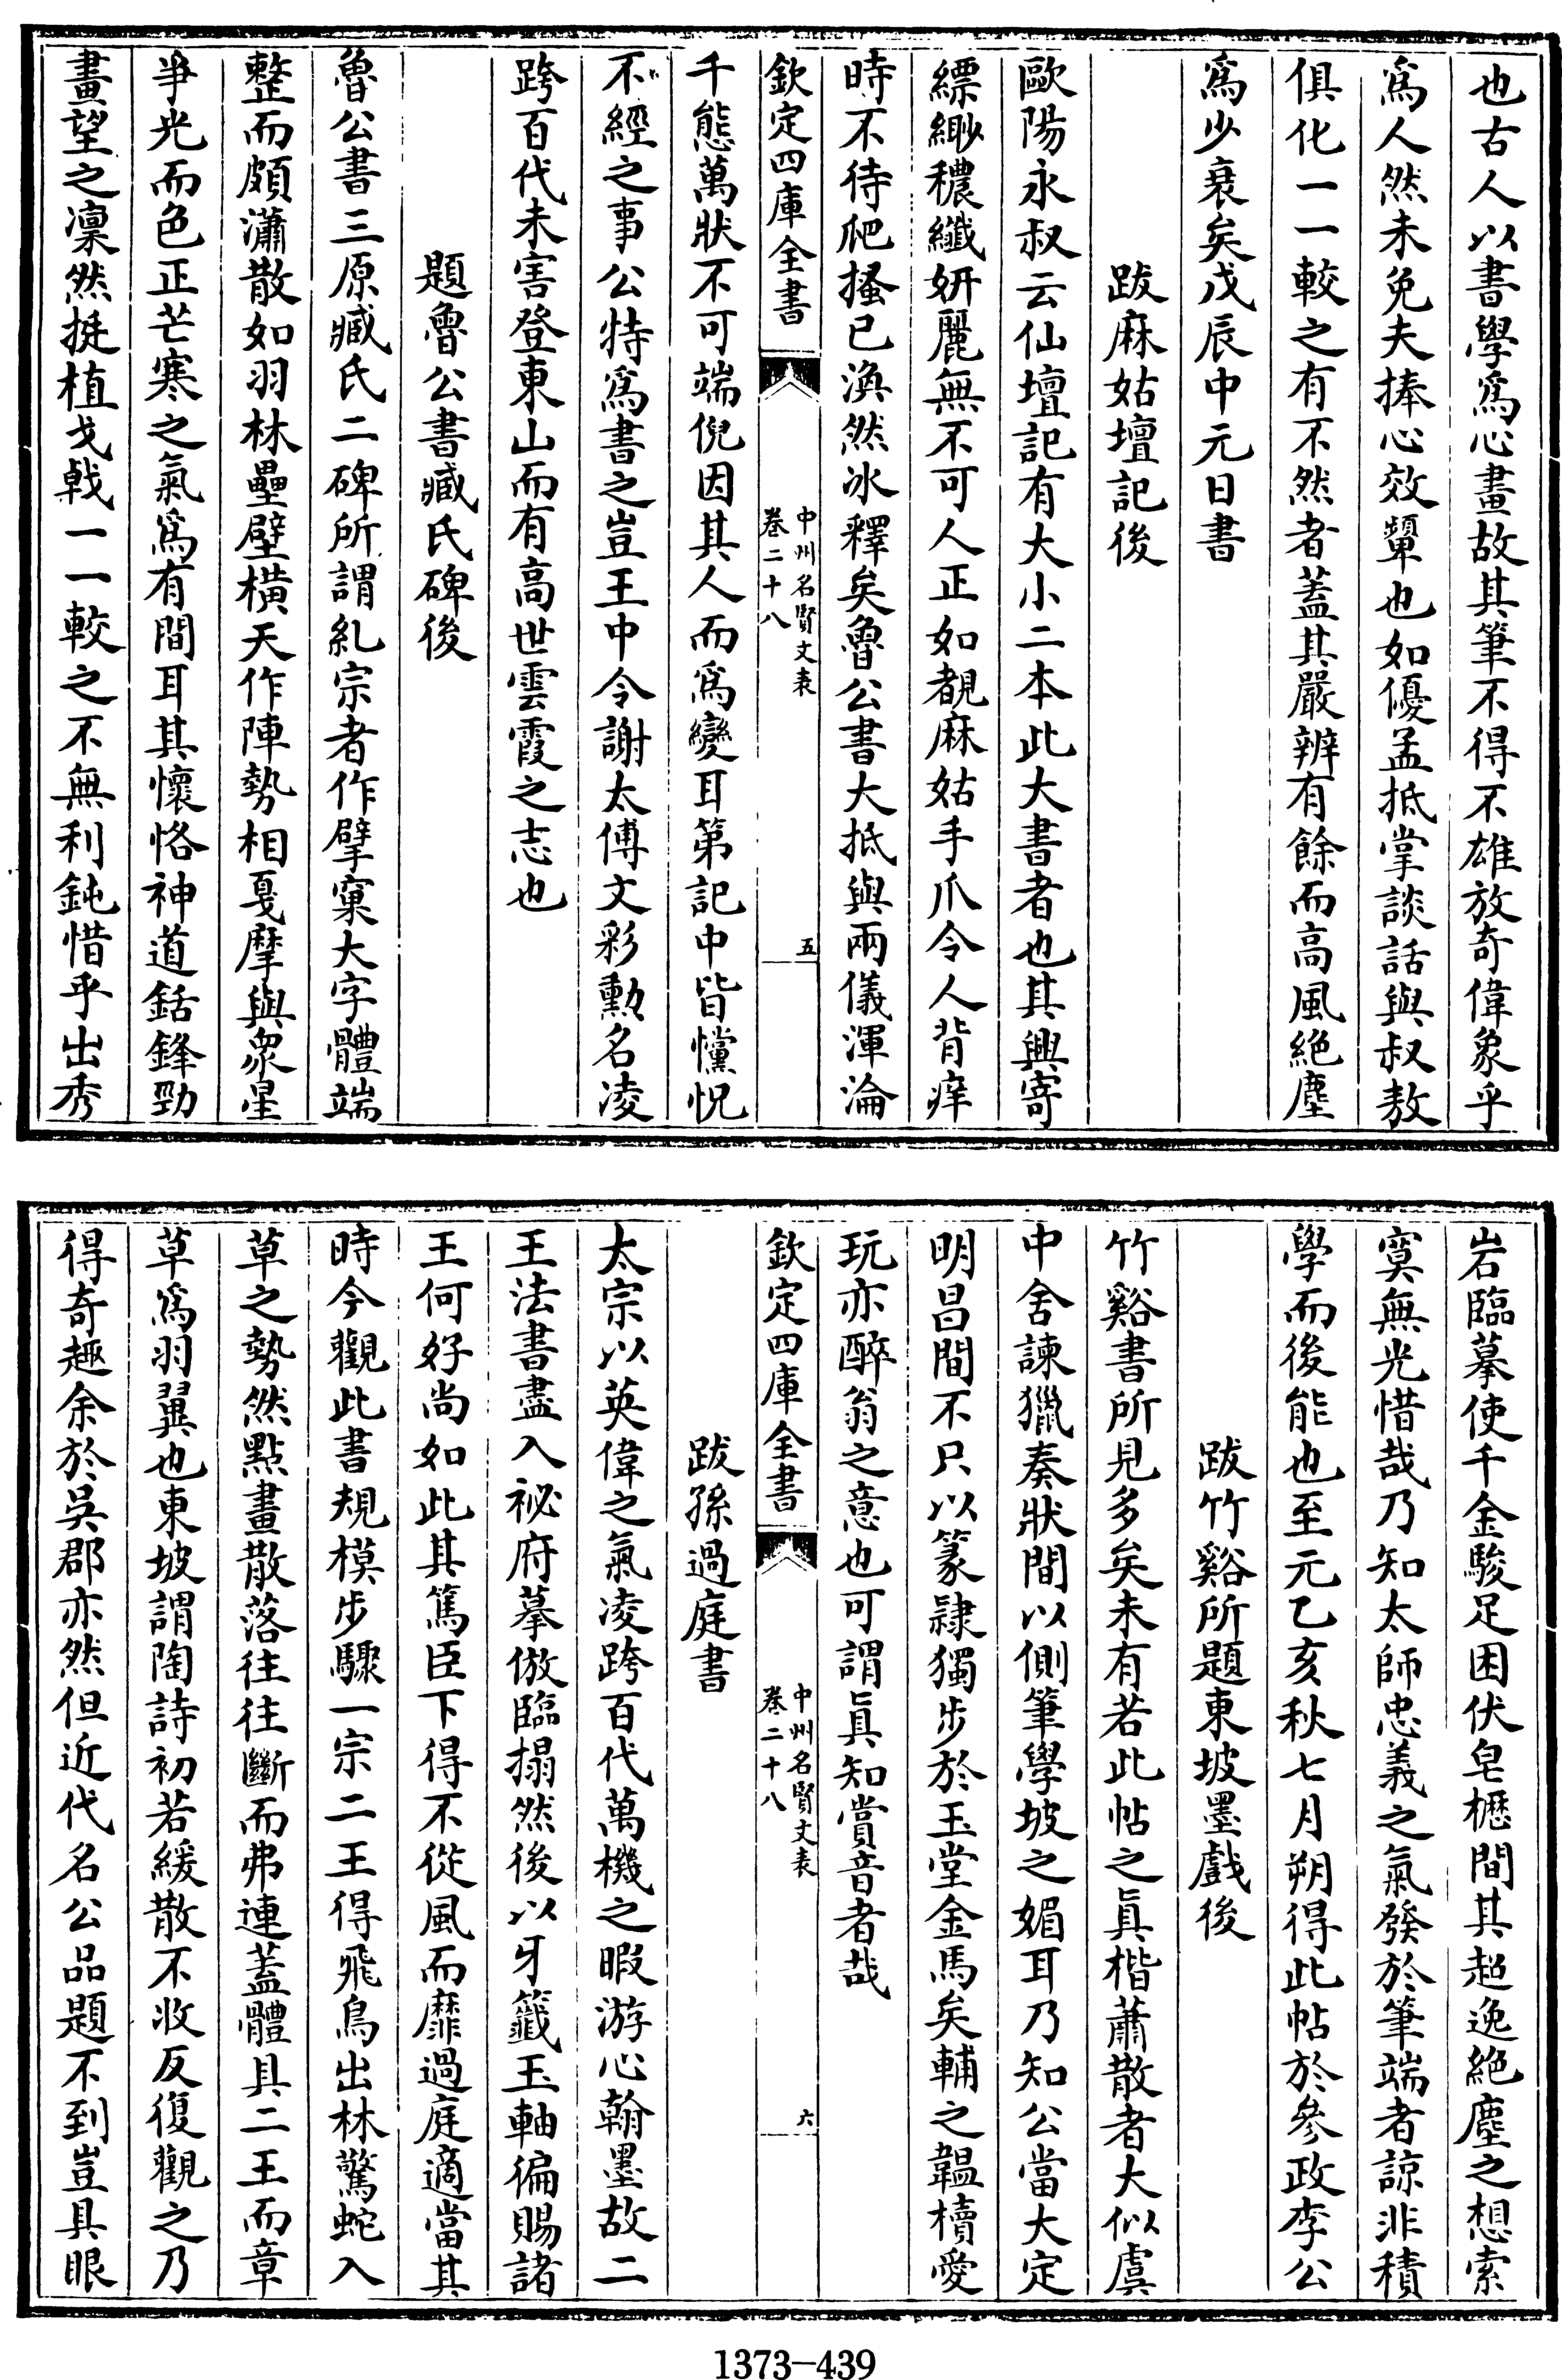 也古人以書學為心畫故其筆不得不雄放奇偉象乎
為人然未免夫捧心效顰也如優孟抵掌談話與叔敖
俱化一一較之有不然者蓋其嚴辨有餘而高風絶塵
為少衰矣戊辰中元日書
跋麻姑壇記後
歐陽永叔云仙壇記有大小二本此大書者也其興寄
縹緲穠纖妍麗無不可人正如覩麻姑手爪令人背痒
時不待爬搔已渙然冰釋矣魯公書大抵與兩儀渾淪
欽定四庫全書
中州名賢文表
卷二十八
五
千態萬狀不可端倪因其人而為變耳第記中皆戃怳
不經之事公特為書之豈王中令謝太傅文彩勲名凌
跨百代未害登東山而有高世雲霞之志也
題魯公書臧氏碑後
魯公書三原臧氏二碑所謂糺宗者作擘窠大字體端
整而頗瀟散如羽林壘壁橫天作陣勢相戛摩與衆星
爭光而色正芒寒之氣為有間耳其懷恪神道銛鋒勁
畫望之凜然挺植戈戟一一較之不無利鈍惜乎出秀
岩臨摹使千金駿足困伏皂櫪間其超逸絶塵之想索
寞無光惜哉乃知太師忠義之氣發於筆端者諒非積
學而後能也至元乙亥秋七月朔得此帖於參政李公
跋竹谿所題東坡墨戲後
竹谿書所見多矣未有若此帖之眞楷蕭散者大似虞
中舍諫獵奏狀間以側筆學坡之媚耳乃知公當大定
明昌間不只以篆隷獨步於玉堂金馬矣輔之韞櫝愛
玩亦醉翁之意也可謂眞知賞音者哉
欽定四庫全書
中州名賢文表
卷二十八
六
跋孫過庭書
太宗以英偉之氣凌跨百代萬機之暇游心翰墨故二
王法書盡入祕府摹倣臨搨然後以牙籤玉軸徧賜諸
王何好尚如此其篤臣下得不從風而靡過庭適當其
時今觀此書規模步驟一宗二王得飛鳥出林驚蛇入
草之勢然點畫散落往往斷而弗連蓋體具二王而章
草為羽翼也東坡謂陶詩初若緩散不收反復觀之乃
得奇趣余於吳郡亦然但近代名公品題不到豈具眼
1373—439